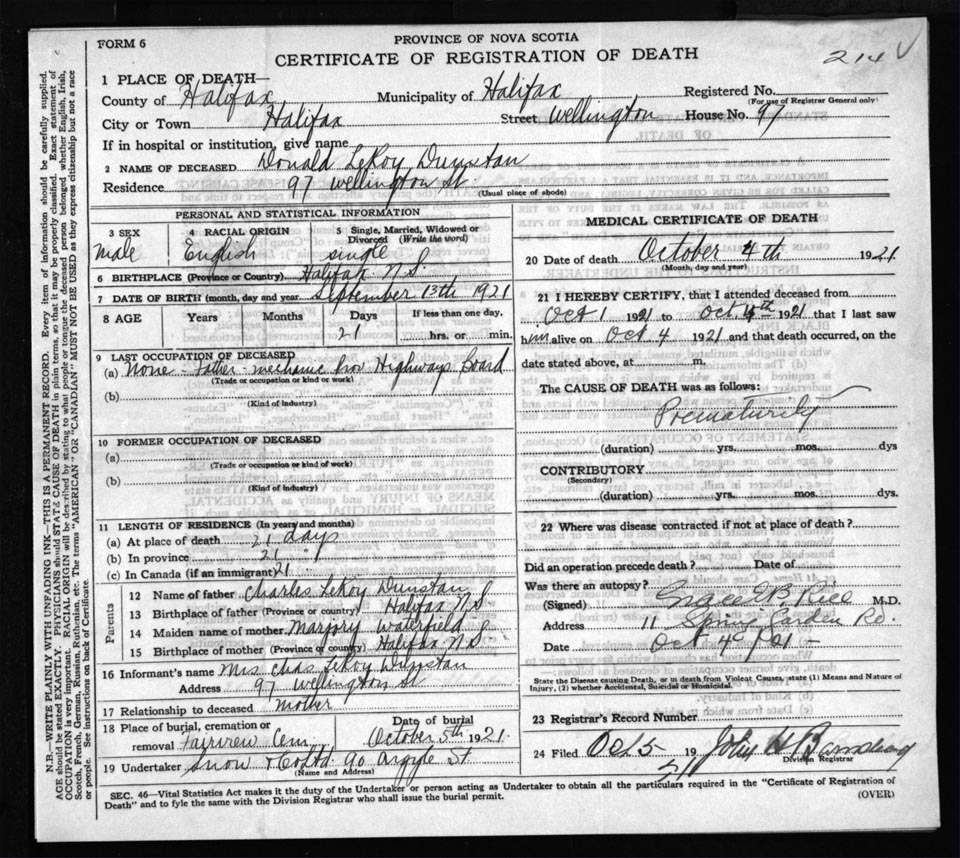 FORM 6
PROVINCE OF NOVA SCOTIA
CERTIFICATE OF REGISTRATION OF DEATH
214
1 PLACE OF DEATH—
County of Halifax Municipality of Halifax Registered No.
(For use of Registrar General only)
City or Town Halifax Street, Wellington House No. 97
If in hospital or institution, give name
2 NAME OF DECEASED Donald LeRoy Dunstan
Residence 97 Wellington St.
(Usual place of abode)
PERSONAL AND STATISTICAL INFORMATION
3 SEX 4 RACIAL ORIGIN 5 Single, Married, Widowed or Divorced (Write the word)
Male English Single
6 BIRTHPLACE (Province or Country) Halifax N.S.
7 DATE OF BIRTH (month, day and year September 13th 1921
8 AGE Years Months Days If less than one day,
21 hrs. or min.
9 LAST OCCUPATION OF DECEASED
(a) None - Father - mechanic Prov Highways Board
(Trade or occupation or kind of work)
(b)
(Kind of industry)
10 FORMER OCCUPATION OF DECEASED
(a)
(Trade or occupation or kind of work)
(b)
(Kind of industry)
11 LENGTH OF RESIDENCE (In years and months)
(a) At place of death 21 days
(b) In province 21 "
(c) In Canada (if an immigrant) 21
Parents
12 Name of father Charles LeRoy Dunstan
13 Birthplace of father (Province or country) Halifax N S
14 Maiden name of mother Marjory Waterfield
15 Birthplace of mother (Province or country) Halifax N.S
16 Informant's name Mrs Chas LeRoy Dunstan
Address 97 Wellington St
17 Relationship to deceased Mother
18 Place of burial, cremation or removal Fairview Cem. Date of burial October 5th 1921
19 Undertaker Snow & Co Ltd 90 Argyle St
(Name and Address)
MEDICAL CERTIFICATE OF DEATH
20 Date of death October 4th 1921
(Month, day and year)
21 I HEREBY CERTIFY, that I attended deceased from
Oct 1 1921 to Oct. 4th 1921 that I last saw
him alive on Oct 4 1921 and that death occurred, on the
date stated above, at m.
The CAUSE OF DEATH was as follows:
Prematurity
(duration) yrs. mos. dys
CONTRIBUTORY
(Secondary)
(duration) yrs. mos. dys.
22 Where was disease contracted if not at place of death?
Did an operation precede death? Date of
Was there an autopsy?
(Signed) Grace E B Rice M.D.
Address 11 Spring Garden Rd.
Date Oct 4
State the Disease causing Death, or in death from Violent Causes, state (1) Means and Nature of
Injury, (2) whether Accidental, Suicidal or Homicidal.
23 Registrar's Record Number
24 Filed Oct 5 19 John H
Division Registrar
SEC. 46—Vital Statistics Act makes it the duty of the Undertaker or person acting as Undertaker to obtain all the particulars required in the "Certificate of Registration of
Death" and to fyle the same with the Division Registrar who shall issue the burial permit. (OVER)
N.B.—WRITE PLAINLY WITH UNFADING INK—THIS IS A PERMANENT RECORD. Every item of information should be carefully supplied.
AGE should be stated EXACTLY. PHYSICIANS should STATE CAUSE OF DEATH in plain terms, so that it may be properly classified. Exact statement of
OCCUPATION is very important. RACIAL ORIGIN will be described by stating to what people or tongue the deceased person belonged whether English, Irish,
Scotch, French, German, Russian, Ruthenian, etc. The terms "AMERICAN" OR "CANADIAN" MUST NOT BE USED as they express citizenship but not a race
or people. See instructions on back of Certificate.